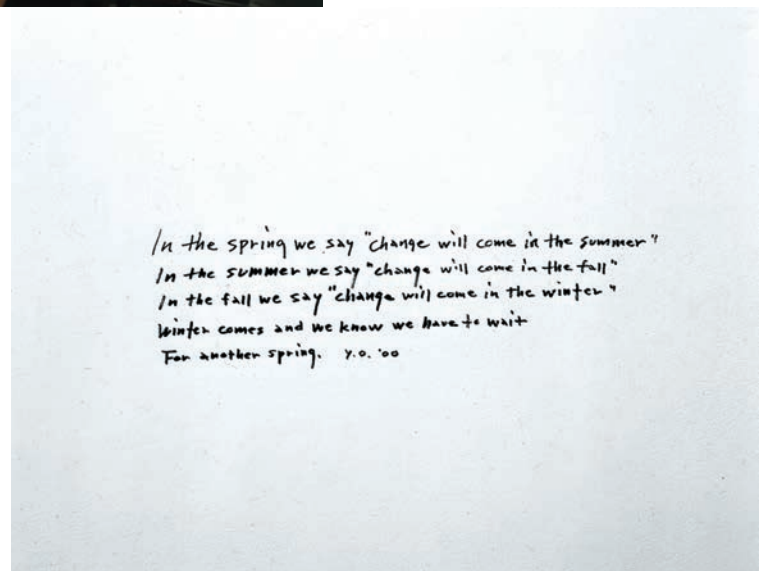 In the spring we say "change will come in the summer"
In the summer we say "change will come in the fall"
In the fall we say "change will come in the winter"
Winter comes and we know we have to wait
For another spring. Y.O. '00